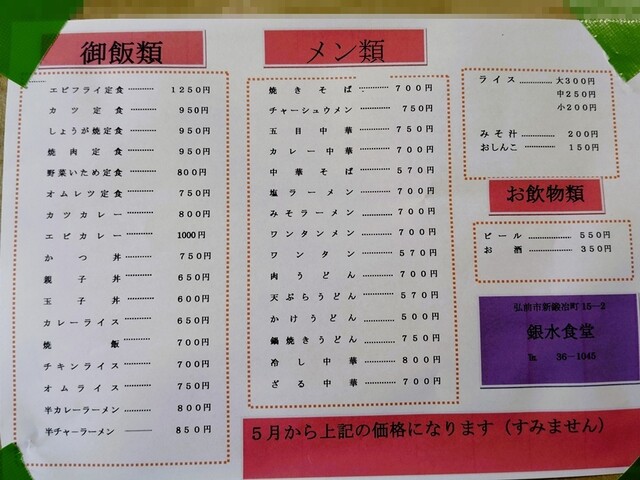 御飯類
エビフライ定食 ………… 1250円
カツ定食 ………… 950円
しょうが焼定食 ………… 950円
焼肉定食 ………… 950円
野菜いため定食 ………… 800円
オムレツ定食 ………… 750円
カツカレー ………… 800円
エビカレー ………… 1000円
かつ丼 ………… 750円
親子丼 ………… 650円
玉子丼 ………… 600円
カレーライス ………… 650円
焼飯 ………… 700円
チキンライス ………… 700円
オムライス ………… 750円
半カレーラーメン ………… 800円
半チャ−ラーメン ――― 850円
メン類
焼きそば ………… 700円
チャーシュウメン ………… 750円
五目中華 ………… 750円
カレー中華 ………… 700円
中華そば ………… 570円
塩ラーメン ………… 700円
みそラーメン ………… 700円
ワンタンメン ………… 700円
ワンタン ………… 570円
肉うどん ………… 700円
天ぷらうどん ………… 570円
かけうどん ………… 500円
鍋焼きうどん ………… 750円
冷し中華 ………… 800円
ざる中華 ………… 700円
ライス ………… 大300円
中250円
小200円
みそ汁 ………… 200円
おしんこ ………… 150円
お飲物類
ビール ………… 550円
お酒 ………… 350円
弘前市新鍛冶町15−2
銀水食堂
℡ 36-1045
5月から上記の価格になります（すみません）